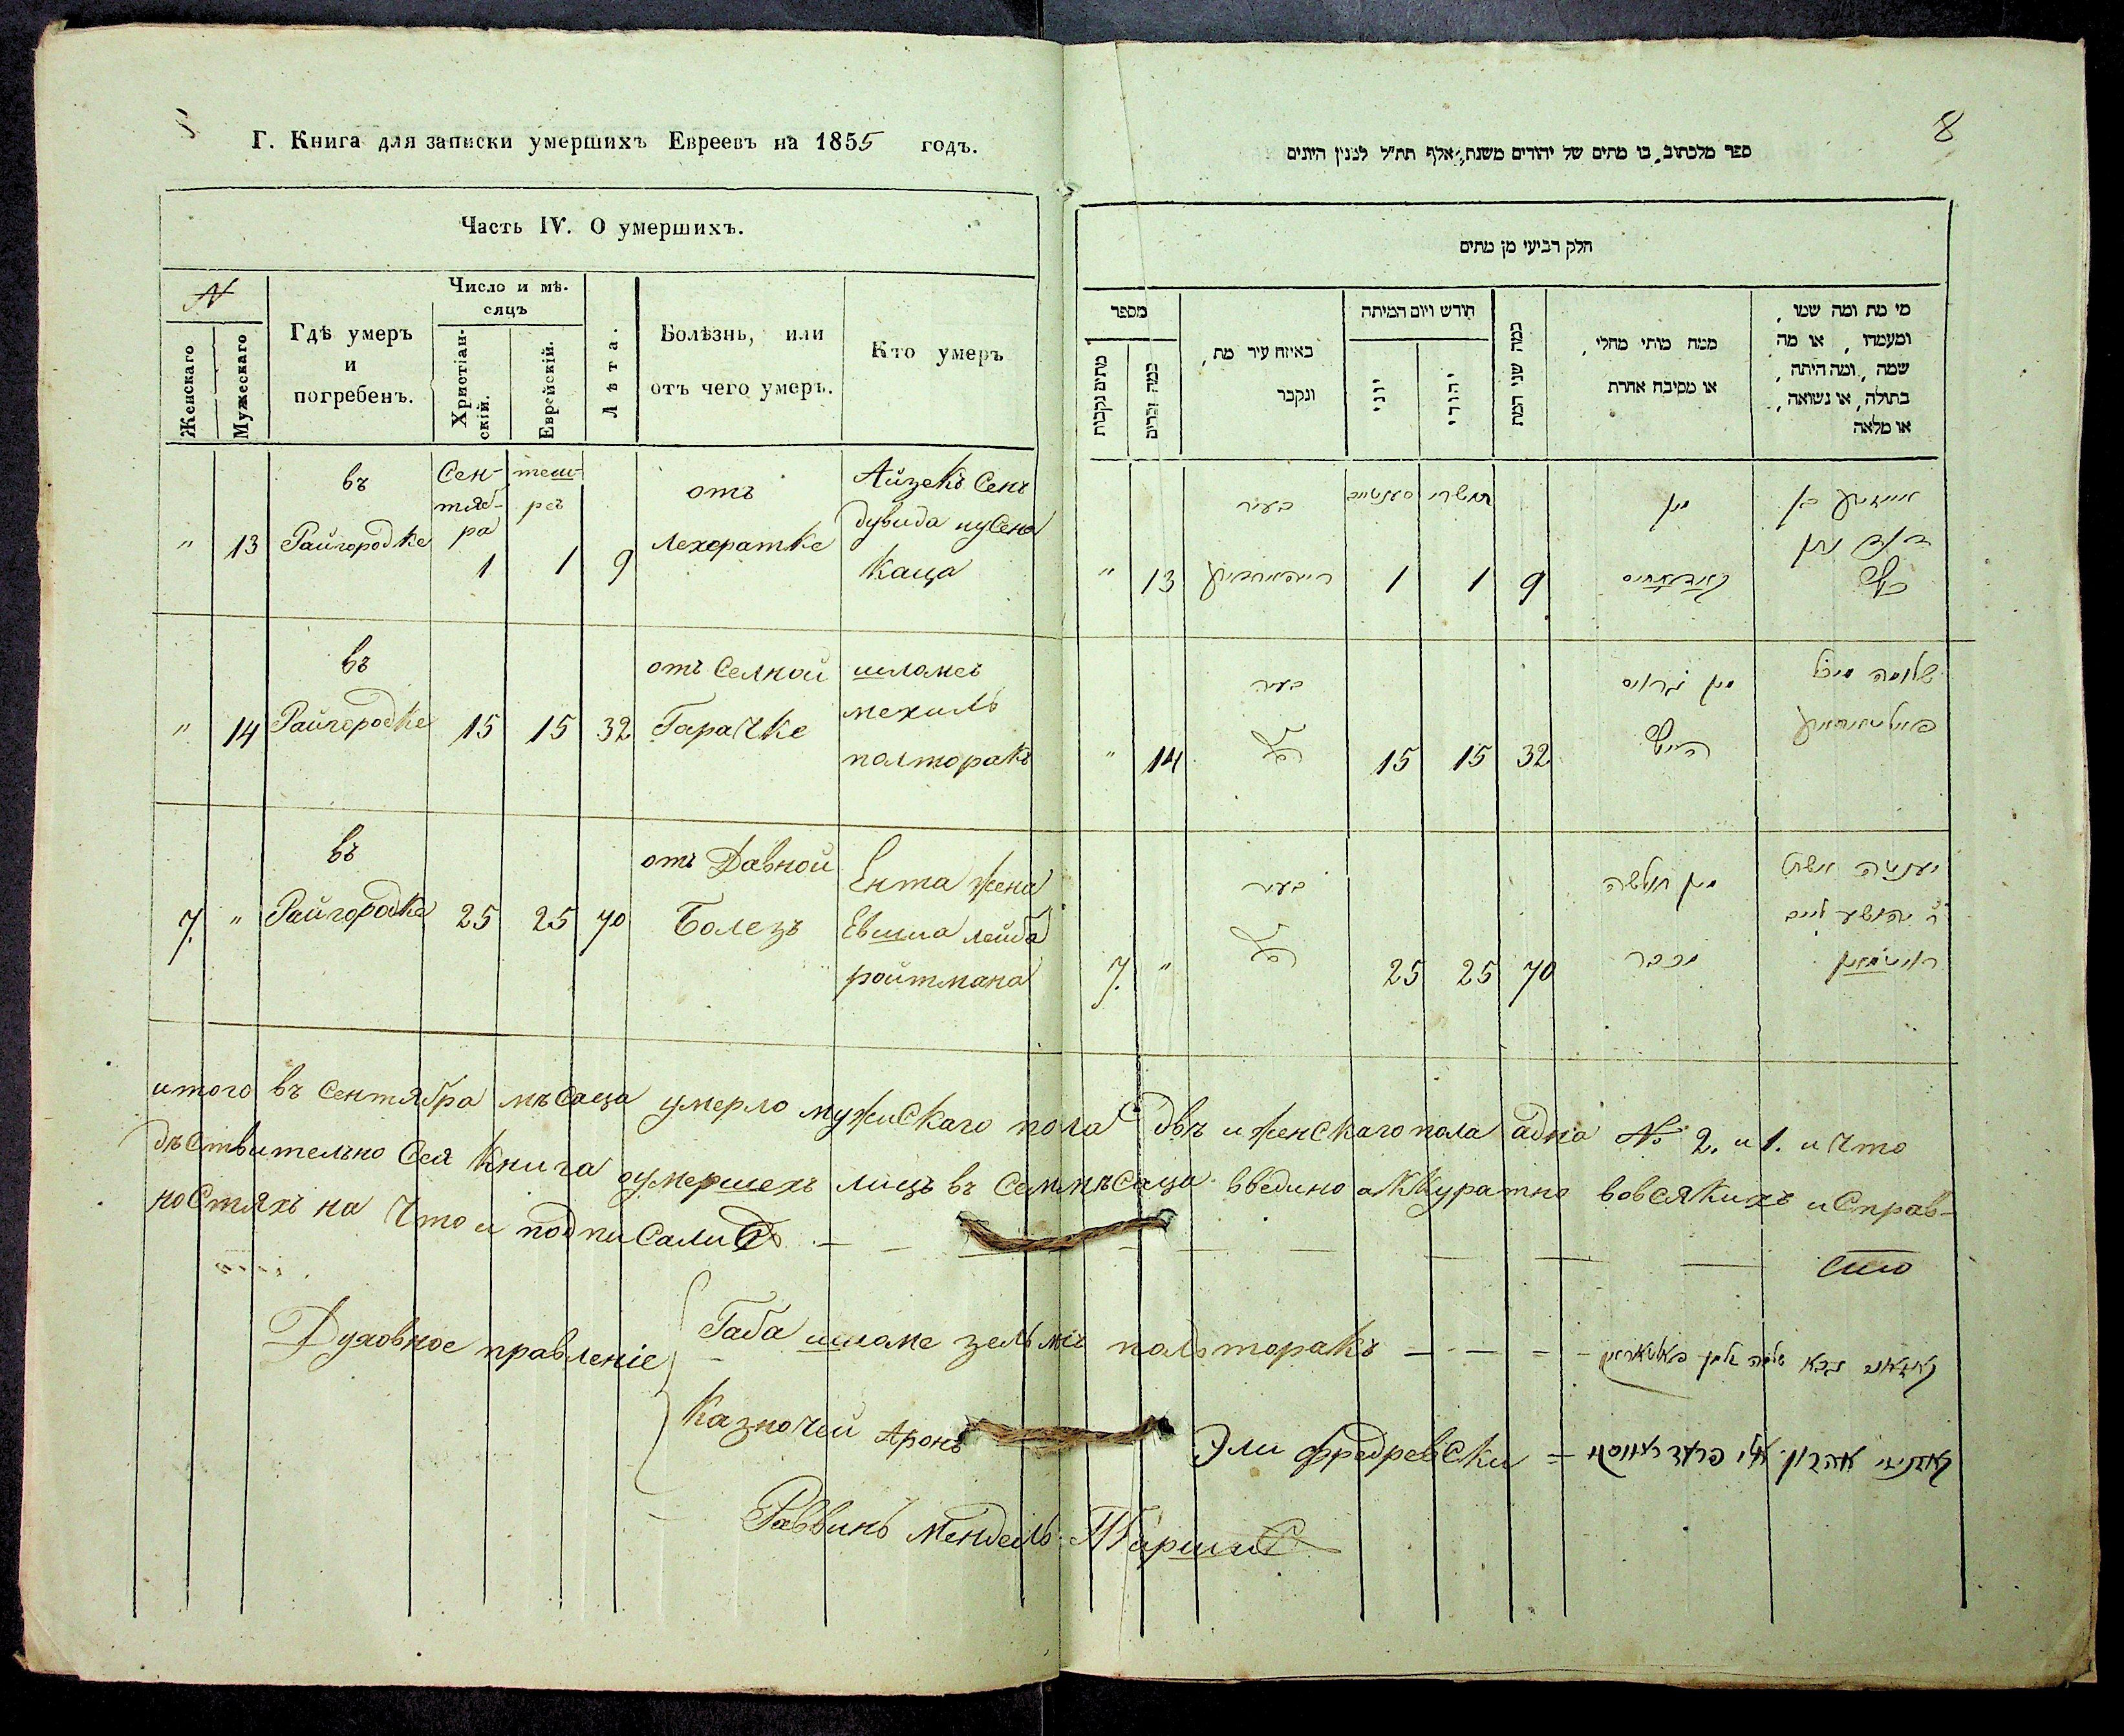 Г. Книга для записки умершихъ Евреевъ на 1855 годъ.
Часть IV. О умершихъ.
N
Женскаго
Мужескаго
Гдѣ умеръ
и
погребенъ.
Число и мѣ-
сяцъ
Христіан-
скій.
Еврейскій.
Лѣта.
Болѣзнь, или
отъ чего умеръ.
Кто умеръ
" 13
въ
Райгородке
Сен-
тяб-
ра
1
теш-
рег
1
9
отъ
лехоратке
Айзекъ Сенъ
дувида нусена
Каца
" 14
въ
Райгородке
15 15 32
отъ Селной
Гарачке
шломе
мехиль
полторакъ
7. "
въ
Райгородке
25 25 70
отъ Давной
Болезъ
Ента жена
Евшиа лейба
ройтмана
8
ספר מלכתוב בו מתים של יהודים משנת אלף תת״ל למנין היונים
חלק רביעי מן מתים
מספר
מתים נקבות
כמה זכרים
באיזה עיר מת,
ונקבר
חודש ויום המיתה
יוני
יהודי
כמה שני המת
ממה מותי מחלי,
או מסיבה אחרת
מי מת ומה שמו,
ומעמדו, או מה
שמה, ומה היתה,
בתולה, או נשואה,
או מלאה
" 13
בעיר
1
תשרי
1
9
מן
דוד נתן
כ״ץ
" 14
בעיר
15 15 32
מן
שלומה מיכל
7. "
בעיר
25 25 70
מן חולשה
מכבר
יענטה אשת
ר׳ יהושע ליב
רויטמאן
итого въ Сентябра мѣсаца умерло мужискаго пола двѣ и женскаго пола адна № 2. и 1. и что
дѣствительно Сея Книга оумершехъ лицъ въ Семмѣсаца введино аккуратно вовсякихъ исправ-
ностяхъ на что и подписалис
Духовное правленіе
Габа шломе зельмѣ польторакъ
גבא שלמה זלמן
Казночей Аронъ Эли фредревски
אהרון אלי
Раввинъ Мендель